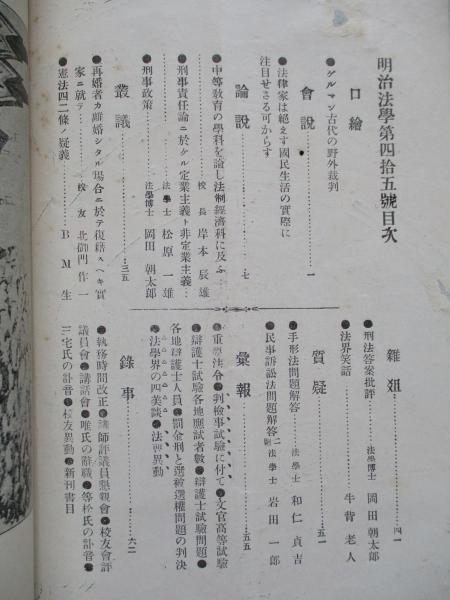 明治法學第四拾五號目次
口繪
●ゲルマン古代の野外裁判
會說
●法律家は絕えず國民生活の實際に
注目せさる可からす……一
論說
●中等敎育の學科を論し法制經濟科に及ふ……七
校長 岸本辰雄
●刑事責任論ニ於ケル定業主義ト非定業主義……
法學士 松原一雄
●刑事政策……法學博士 岡田朝太郎
叢議
●再婚者カ離婚シタル場合ニ於テ復籍スヘキ實……三五
家ニ就テ……校友 北御門作一
●憲法四二條ノ疑義……BM生
雜俎
●刑法答案批評……法學博士 岡田朝太郎……四一
●法界笑話……牛背老人
質疑
●手形法問題解答……法學士 和仁貞吉……五一
●民事訴訟法問題解答……法學士 岩田一郎
彙報
●重要法令●判檢事試驗に付て●文官高等試驗……五五
●辯護士試驗各地應試者數●辯護士試驗問題●
各地辯護士人員●罰金刑と選被選權問題の判決
●法學界の四美談●法曹異動
錄事
●執務時間改正●講師評議員懇親會●校友會評……六二
議員會●講話會●唯氏の辭職●等松氏の訃音●
三宅氏の訃音●校友異動●新刊書目